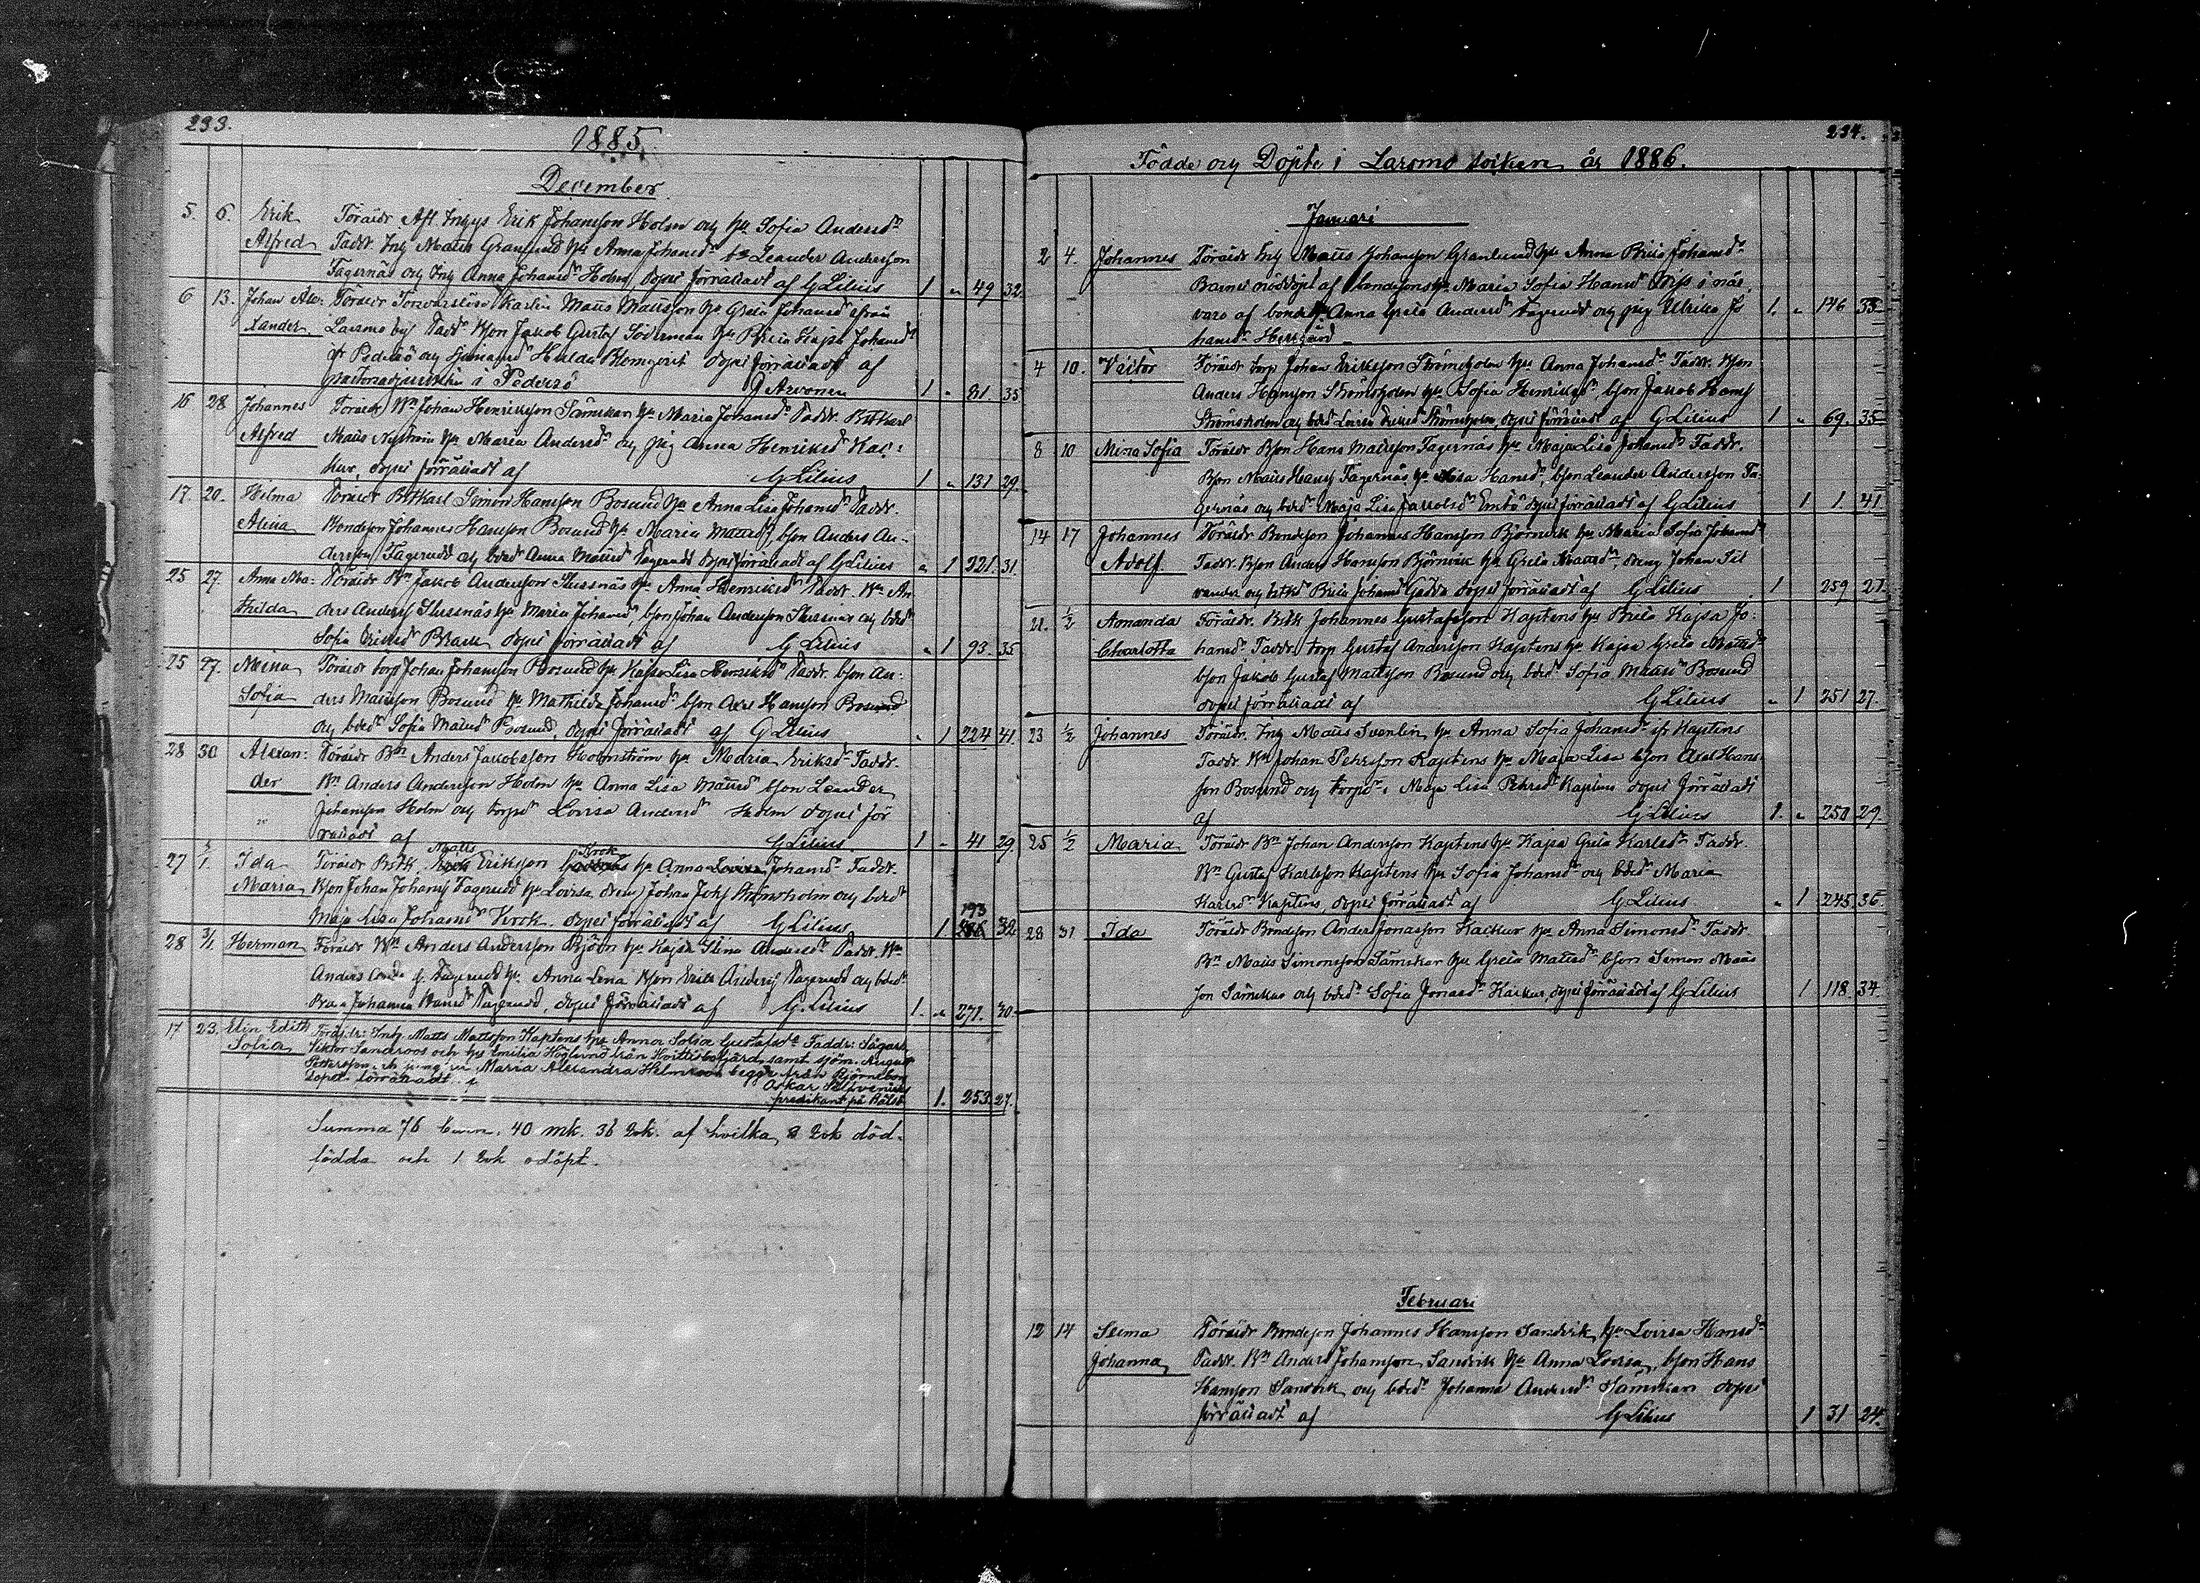 233.
1885.
December
5. 6. Erik Föräldr Aft Ingys Erik Johansson Holm och hu Sofia Andersdr
Alfred Faddr Ing Matts Granlund hu Anna Johansdr bs Leander Andersson
Fagernäs och Ing Anna Johansdr Holm, dopet förrättadt af G Lilius 1 " 49 32
6 13. Johan Ale- Föräldr Karlen Matts Mattsson hu Greta Johansdr ifrån
xander Larsmo by, Faddr Bson Jakob Gustaf Söderman hu Brita Kajsa Johansdr
ifr Pedersö och Hulda Blomqvist dopet förrättadt af
Pastorsadjunkten i Pedersö J Arvonen 1 " 81 35
16 28 Johannes Föräldr Bn Johan Henriksson Sämskar hu Maria Johansdr Faddr.
Alfred Matts Nyström hu Maria Andersdr och pig Anna Henriksdr Kac-
kur, dopet förrättadt af G Lilius 1 " 131 29
17. 20. Helma Föräldr Simon Hansson Bosund hu Anna Lisa Johansdr Faddr.
Alina Bondeson Johannes Hansson Bosund hu Maria Mattsdr, bson Anders An-
dersson Fagerudd och bdr Anna Mattsdr Fagerudd dopet förrättadt af G Lilius " 1 221 31.
25 27. Anna Ma- Föräldr Bn Jakob Andersson Slussnäs hu Anna Henriksdr Faddr. Bn An-
thilda ders Anderss Slussnäs hu Maria Johansdr, bson Johan Andersson Slussnäs och bdr
Sofia Eriksdr dopet förrättadt af G Lilius " 1 93. 35
25 27. Mina Föräldr torp Johan Johansson Bosund hu Kajsa Lisa Henriksdr Faddr. bson An-
Sofia ders Mattsson Bosund hu Mathilda Johansdr bson Axel Hansson Bosund
och bdr Sofia Mattsdr Bosund, dopet förrättadt af G Lilius " 1 224 41.
28 30 Alexan- Föräldr Bn Anders Jakobsson Holmström hu Maria Eriksdr Faddr.
der Bn Anders Andersson Holm hu Anna Lisa Mattsdr bson Leander
Johansson Holm och torpdr Lovisa Andersdr Holm dopet för
rättadt af G Lilius. 1 " 41 29
27 5/1 Ida Föräldr Matts Eriksson Krok hu Anna Lovisa Johansdr Faddr.
Maria Bson Johan Johanss Fagerudd hu Lovisa, dräng Johan Johs Strömsholm och bdr
Maja Lisa Johansdr Krok. dopet förrättadt af G Lilius 1 193 32
28 3/1 Herman Föräldr Bn Anders Andersson Björn hu Kajsa Stina Andersdr Faddr. Bn
Anders Fagerudd hu Anna Lena Bson Erik Anderss Fagerudd och bdr
Johanna Hansdr Fagerudd, dopet förrättadt af G. Lilius 1. " 271. 30
17 23. Elin Edith Föräldr: Inh. Matts Mattsson Kaptens hu Anna Sofia Gustafsdr Faddr: Sågare
Sofia Viktor Sandroos och hu Emilia Höglund från Kvittisbofjärd samt sjöm. August
Pettersson och Maria Alexandra Helmroos begge från Björneborg
Dopet förrättadt af Oskar
predikant på Räfsö 1. 253. 27.
Summa 76 barn, 40 mk. 36 qvk. af hvilka 2 qvk död-
födda och 1 qvk odöpt.
234.
Födde och Döpte i Larsmo socken år 1886.
Januari
2 4. Johannes Föräldr Ing Matts Johansson Granlund hu Anna Brita Johansdr
Barnet nöddöpt af bondesons hu Maria Sofia Hansdr i när-
varo af bonde hu Anna Greta Andersdr Fagerudd och pig Ulrika Jo
hansdr Herrgård 1. " 146 33
4 10. Victor Föräldr torp Johan Eriksson Strömsholm hu Anna Johansdr Faddr. Bson
Anders Hansson Strömsholm hu Sofia Henriksdr, bson Jakob Hanss
Strömsholm och bdr Lovisa Eriksdr Strömsholm, dopet förrättadt af G Lilius 1 " 69. 35
8 10 Mina Sofia Föräldr Bson Hans Mattsson Fagernäs hu Maja Lisa Johansdr Faddr.
Bson Matts Hanss Fagernäs hu Lisa Hansdr, bson Leander Andersson Fa-
gernäs och bdr Maja Lisa Jakobsdr Emtö dopet förrättadt af G Lilius 1 1. 41
14 17 Johannes Föräldr Bondeson Johannes Hansson Björnvik hu Maria Sofia Johansdr
Adolf Faddr. Bson Anders Hansson Björnvik hu Greta Mattsdr, dreng Johan Sil
vander och Brita Johansdr Gädda dopet förrättadt af G Lilius 1 259 27
21. 1/2 Amanda Föräldr. Johannes Gustafsson Kaptens hu Brita Kajsa Jo-
Charlotta hansdr Faddr. torp Gustaf Andersson Kaptens hu Kajsa Greta Mattsdr
bson Jakob Gustaf Mattsson Bosund och bdr Sofia Mattsdr Bosund
dopet förrättadt af G Lilius " 1 251 27.
23 1/2 Johannes Föräldr. Ing Matts Svenlin, hu Anna Sofia Johansdr ifr Kaptens
Faddr. Bn Johan Pehrsson Kaptens hu Maja Lisa bson Axel Hans
son Bosund och torpdr Maja Lisa Pehrsdr Kaptens dopet förrättadt
af G Lilius 1. " 250 29.
25 1/2 Maria Föräldr Bn Johan Andersson Kaptens hu Kajsa Greta Karlsdr Faddr.
Bn Gustaf Karlsson Kaptens hu Sofia Johansdr och bdr Maria
Karlsdr Kaptens, dopet förrättadt af G Lilius. " 1 245 36
28 31 Ida Föräldr Bondeson Anders Jonasson Kackur hu Anna Simonsdr Faddr.
Bn Matts Simonsson Sämskar hu Greta Mattsdr bson Simon Matts
son Sämskar och bdr Sofia Jonasdr Kackur, dopet förrättadt af G Lilius 1 118. 34
Februari
12 14 Selma Föräldr Bondeson Johannes Hansson Sandvik hu Lovisa Hansdr
Johanna Faddr. Bn Anders Johansson Sandvik hu Anna Lovisa, bson Hans
Hansson Sandvik och bdr Johanna Andersdr Sämskar dopet
förrättadt af G Lilius 1 31 24.